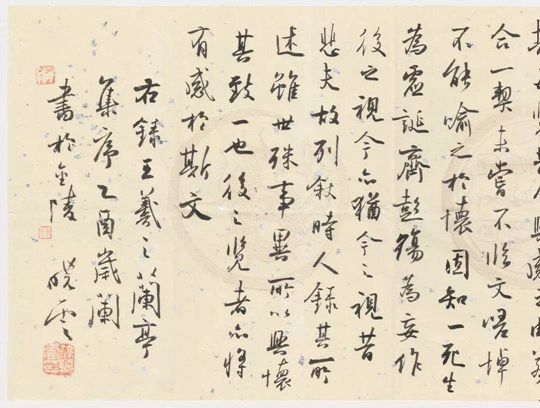 合一契未嘗不臨文嗟悼
不能喻之於懷固知一死生
為虛誕齊彭殤為妄作
後之視今亦猶今之視昔
悲夫故列敘時人錄其所
述雖世殊事異所以興懷
其致一也後之覽者亦將
有感於斯文
右錄王羲之蘭亭
集序乙酉歲闌
書於金陵